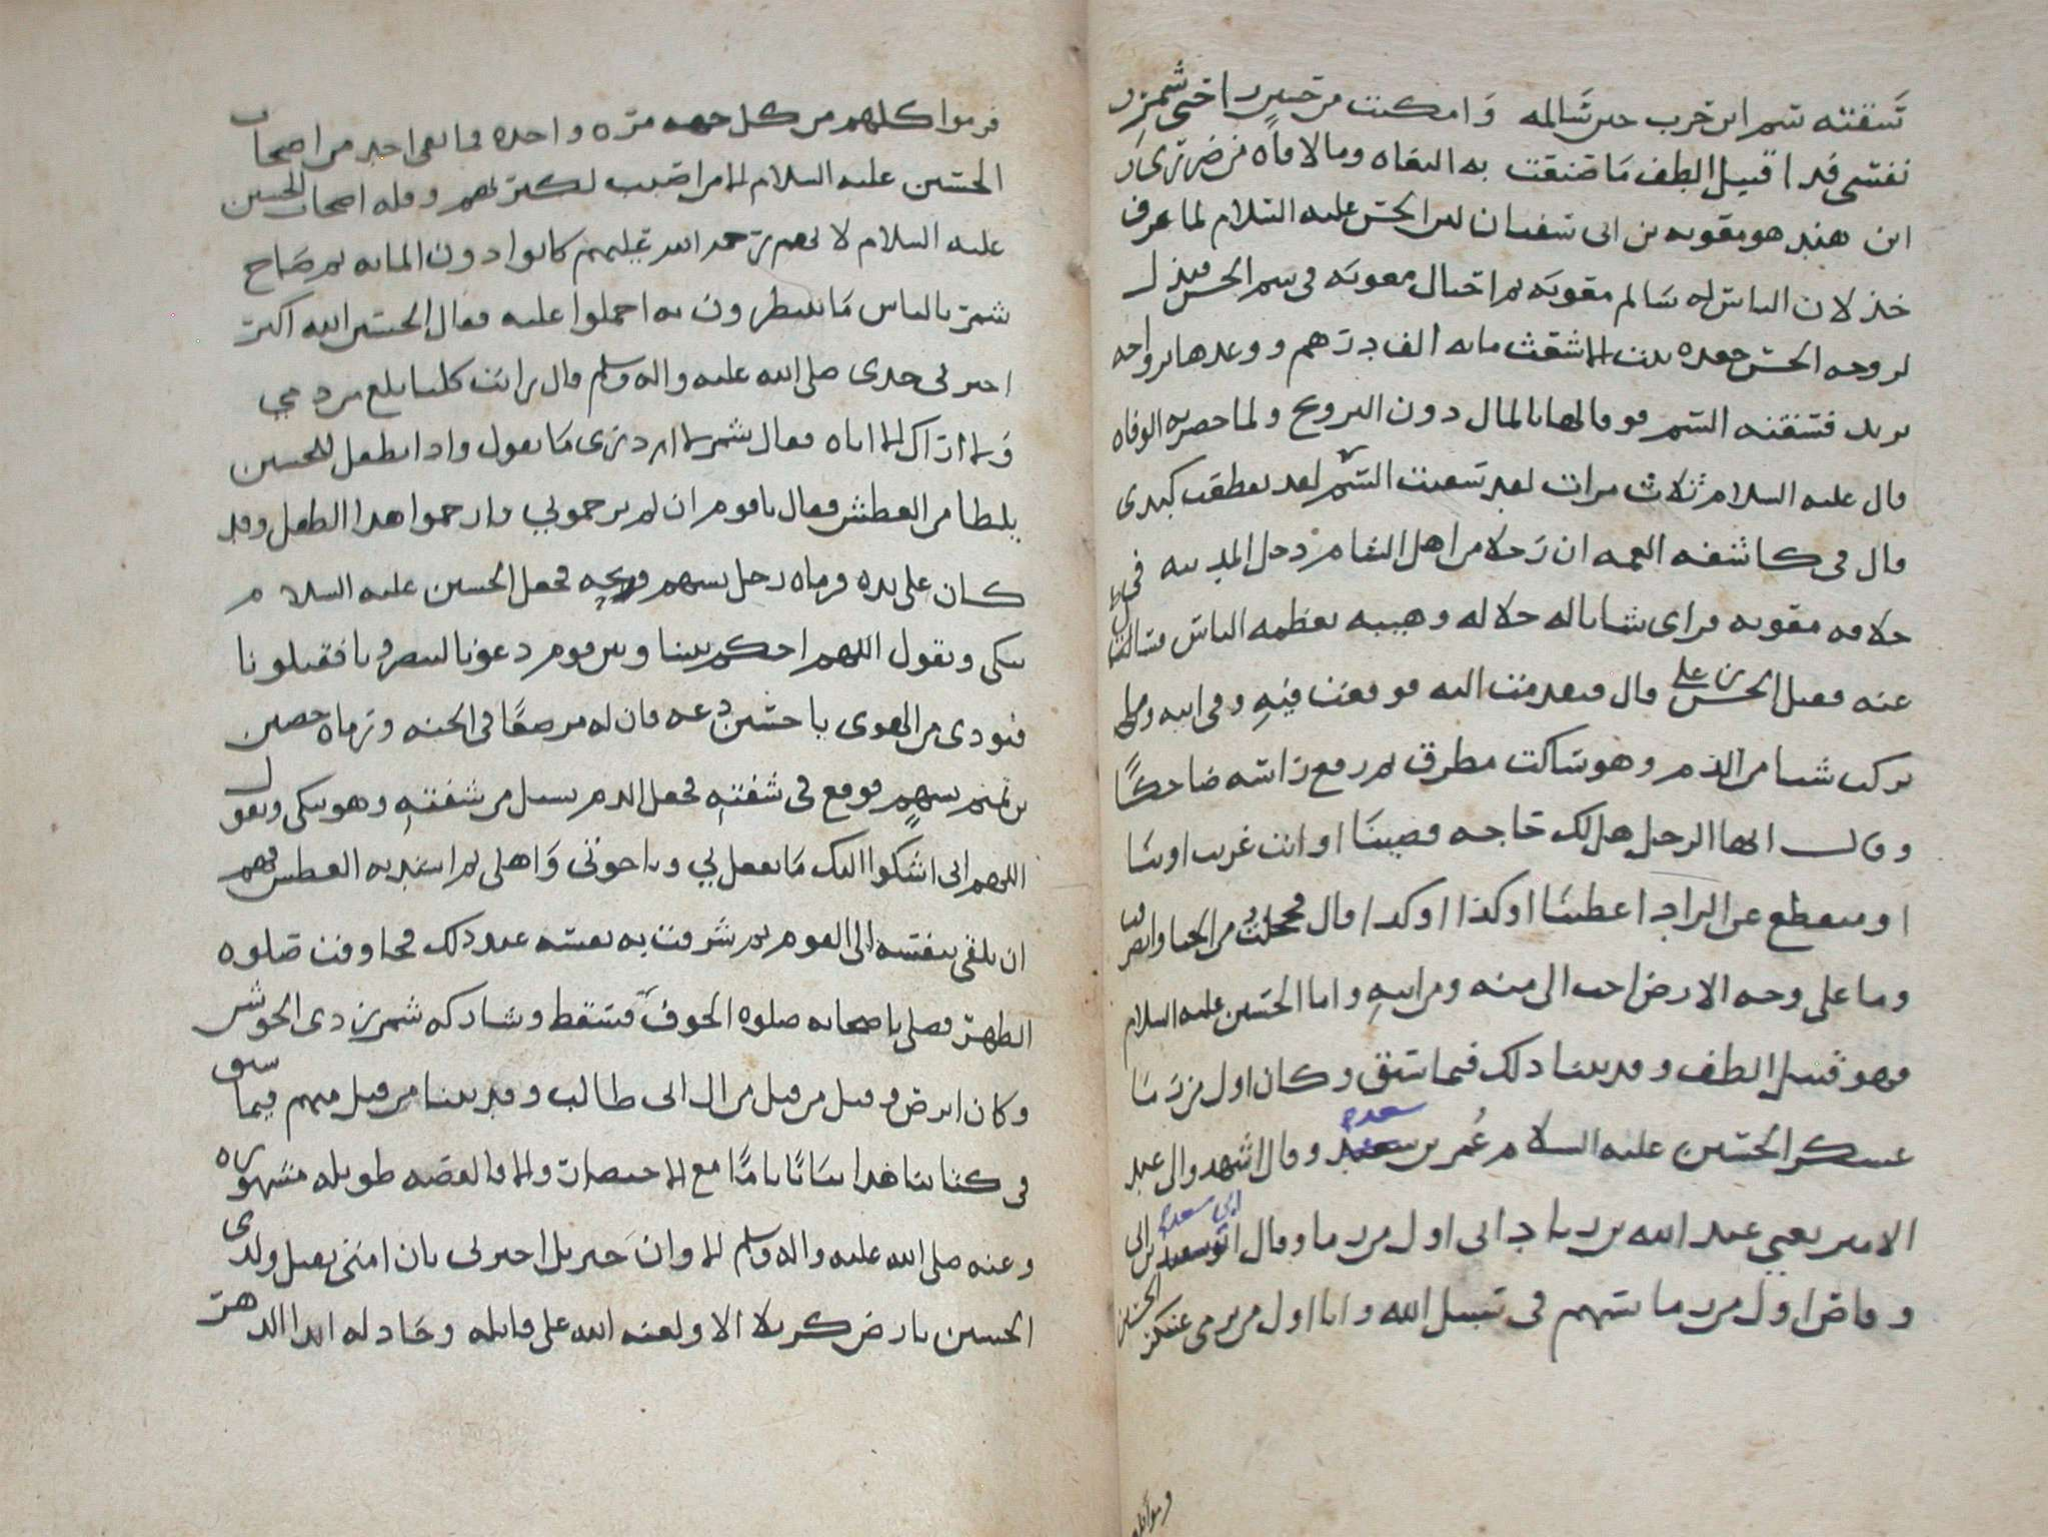 سقته سم ابن حرب حين سالمه وامكنت من حسين راحتي شمر
نفسي فدا قتيل الطف ما صنعت به البغاه وما لاقاه من ضرر
ابن هند هو معويه بن ابي سفيان لعن الحسن عليه السلام لما عرف
خذلان الناس له سالم معويه ثم احتال معويه في سم الحسن فبذل
لزوجه الحسن جعده بنت الاشعث مايه الف درهم ووعدها بزواجه
يزيد فسقته السم فوفا لها بالمال دون التزويج ولما حضرته الوفاه
قال عليه السلام ثلاث مرات لقد سقيت السم لقد تقطعت كبدي
قال في كاشفه الغمه ان رجلا من اهل الشام دخل المدينه في
خلافه معويه فراى شابا له جلاله وهيبه يعظمه الناس فسالت
عنه فقيل الحسن بن علي قال فتقدمت اليه فوقعت فيه وفي ابيه وما
تركت شيا من الذم وهو ساكت مطرق ثم رفع راسه ضاحكا
وقال ايها الرجل هل لك حاجه قضينا او انت غريب اوينا
او منقطع عن الزاد اعطينا او كذا او كذا قال فخجلت من الحيا وانصرفت
وما على وجه الارض احب الي منه ومن ابيه واما الحسين عليه السلام
فهو قتيل الطف وقد بينا ذلك فيما سبق وكان اول من رما
عسكر الحسين عليه السلام عمر بن سعد وقال اشهدوا لي عند
الامير يعني عبيد الله بن زياد اني اول من رما وقال ابو سعد بن ابي
وقاص اول من رما بسهم في سبيل الله وانا اول من يرمي عسكر الحسين
فرموا كلهم من كل جهه مره واحده فما بقي احد من اصحاب
الحسين عليه السلام الا من اصيب لكثرتهم وقله اصحاب الحسين
عليه السلام لانهم رحمه الله عليهم كانوا دون المايه ثم صاح
شمر بالناس ما تنتظرون به احملوا عليه فقال الحسين الله اكبر
اخبرني جدي صلى الله عليه واله وسلم قال رايت كلبا يلغ من دمي
ولا اراك الا اياه فقال شمر لا ادري ما تقول واذا بطفل للحسين
يلطا من العطش فقال يا قوم ان لم ترحموني فارحموا هذا الطفل وقد
كان على يده فرماه رجل بسهم وذبحه فجعل الحسين عليه السلام
يبكي ويقول اللهم احكم بيننا وبين قوم دعونا لينصرونا فقتلونا
فنودي من الهوى يا حسين دعه فان له مرضعا في الجنه ورماه حصين
بن تميم بسهم فوقع في شفته فجعل الدم يسيل من شفته وهو يبكي ويقول
اللهم اني اشكوا اليك ما يفعل بي وباخوتي واهلي ثم اشتد به العطش فهم
ان يلقي بنفسه الى القوم ثم شرفت به نفسه عند ذلك فجا وقت صلوه
الظهر فصلى باصحابه صلوه الخوف فسقط وشاركه شمر بن ذي الجوشن
وكان ابرص وقيل من قتل من ال ابي طالب وقد بينا من قتل منهم فيما سبق
في كتابنا هذا بيانا تاما مع الاختصار والا فالقصه طويله مشهوره
وعنه صلى الله عليه واله وسلم الا وان جبريل اخبرني بان امتي تقتل ولدي
الحسين بارض كربلا الا ولعنه الله على قاتله وخاذله ابدا الدهر